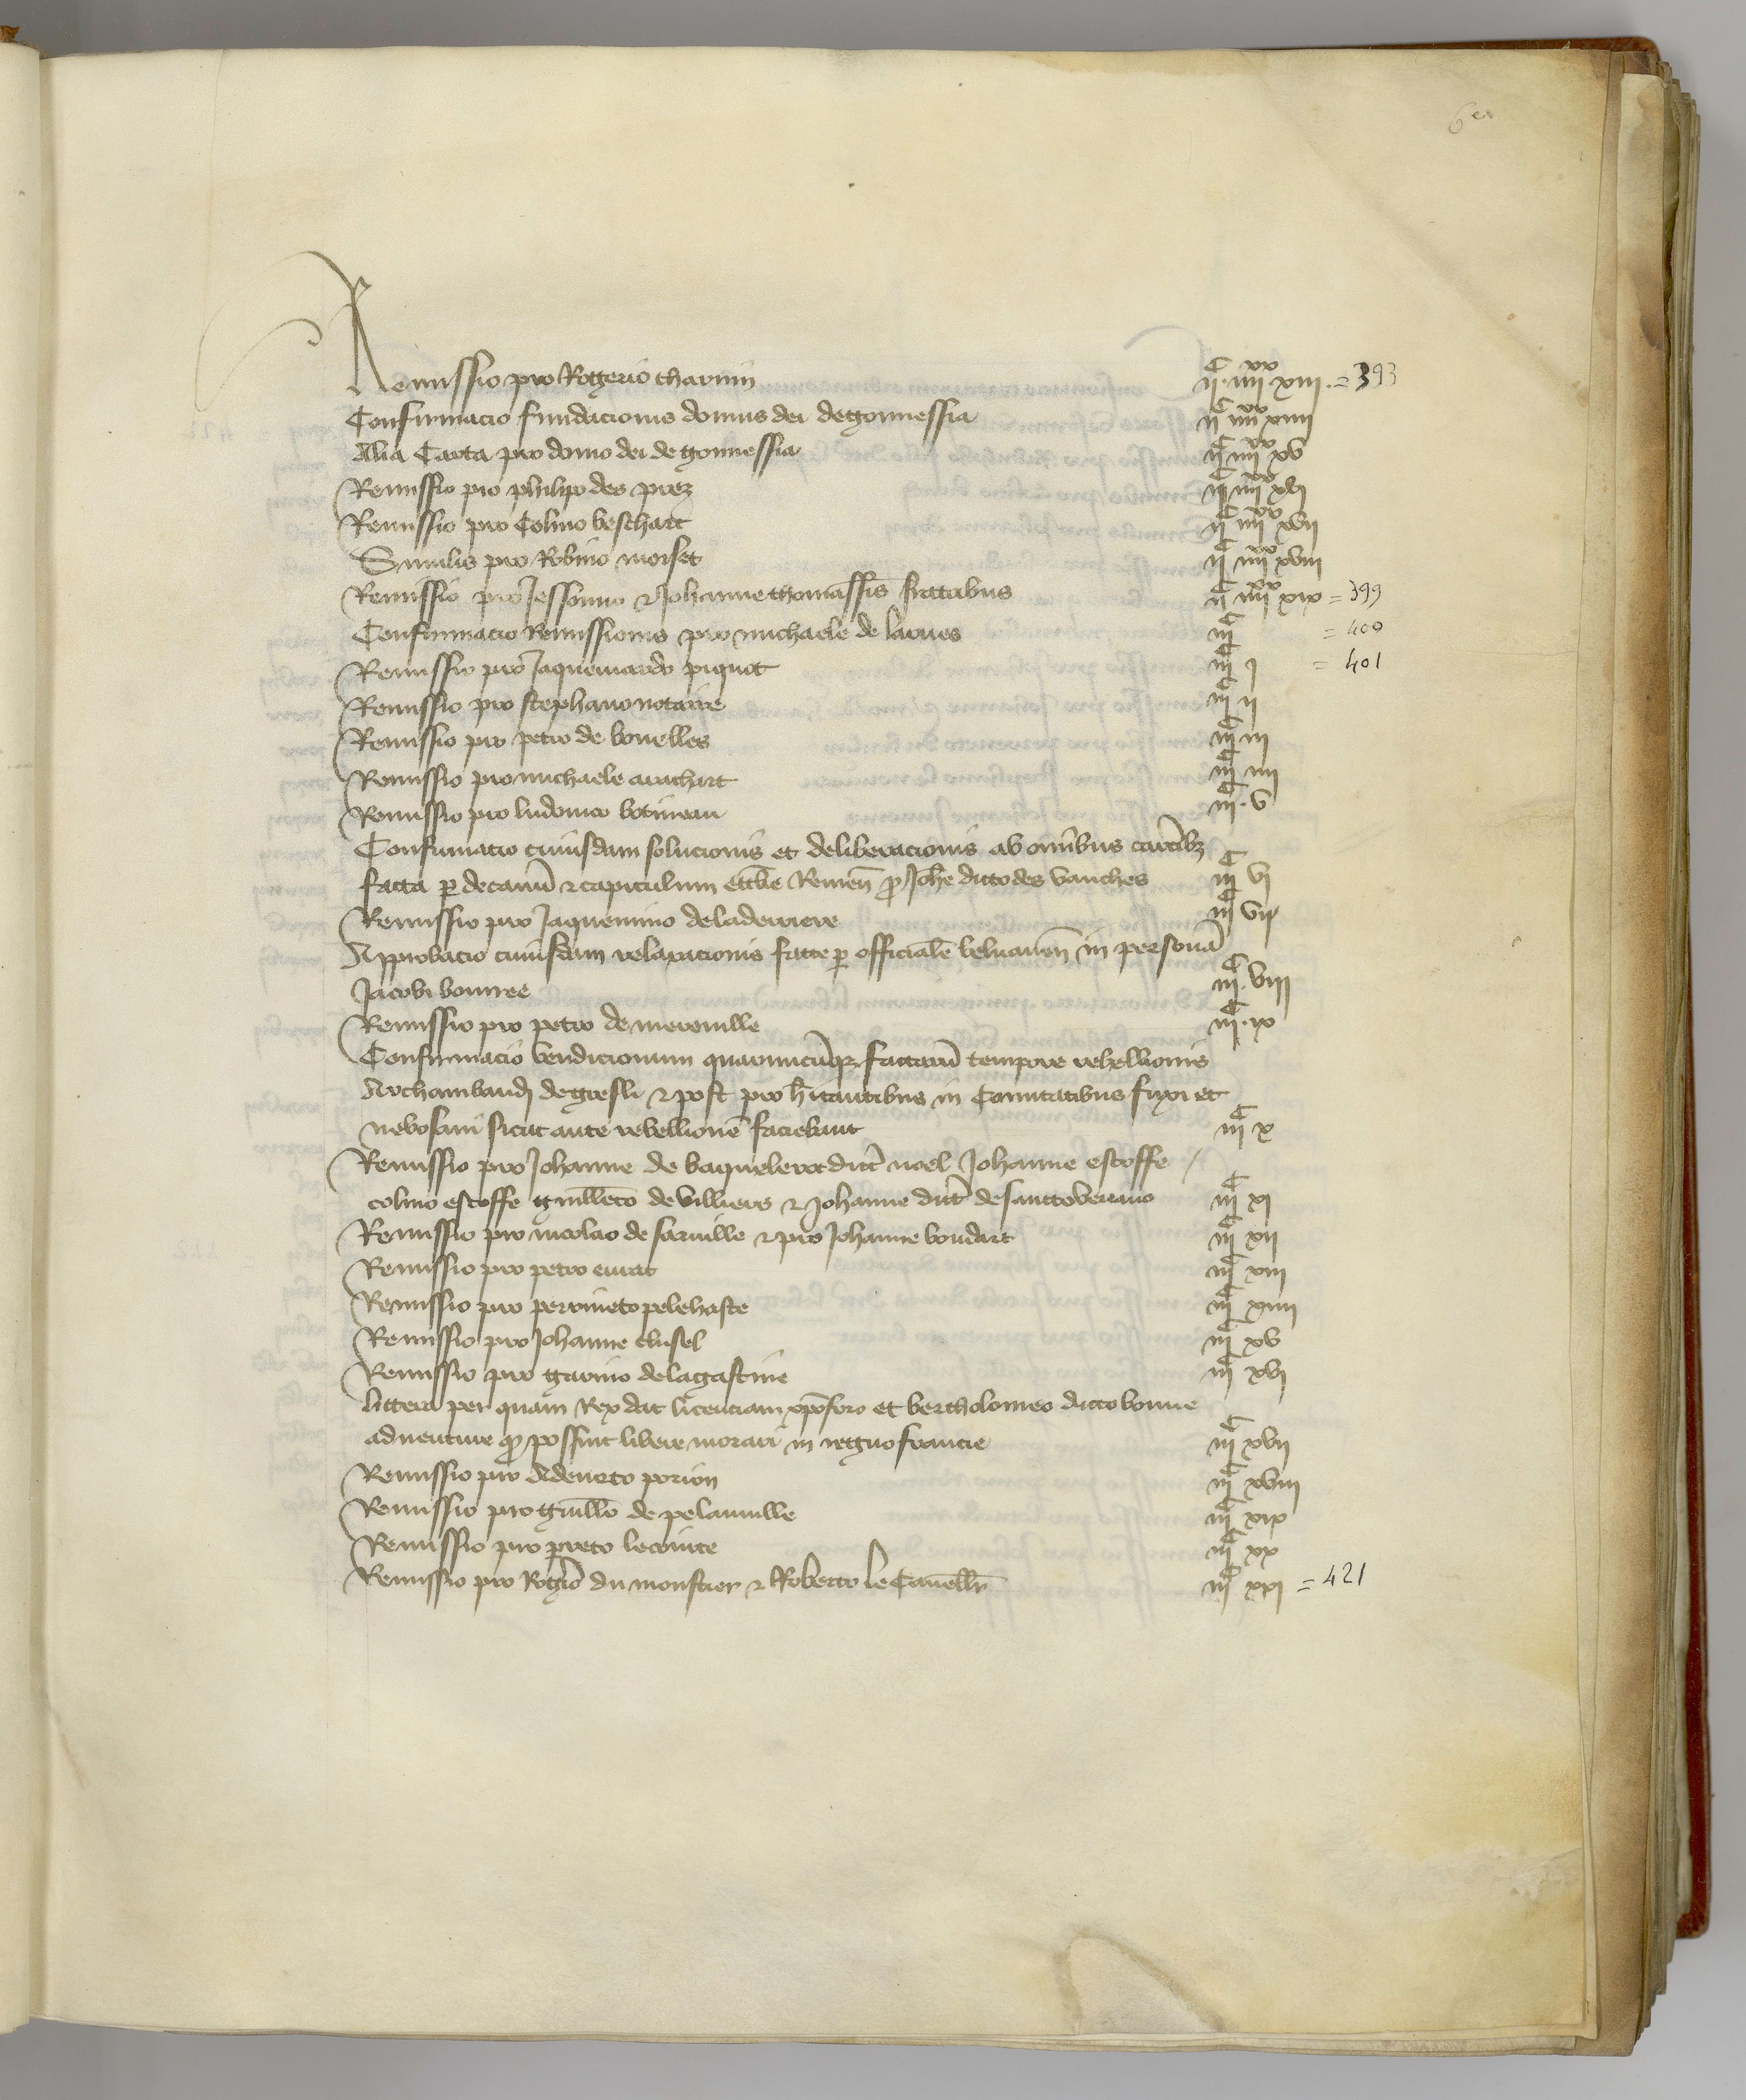 6
Remissio pro Rogerio charnin IIC IIIIXX XIII = 393
Confirmacio fundacionis domus dei de gonnessia IIC IIIIXX XIIII
Alia Carta pro domo dei de gonnessia IIC IIIIXX XV
Remissio pro philipo des prez IIC IIIIXX XVI
Remissio pro Colino beschart IIC IIIIXX XVII
Similis pro Robino morset IIC IIIIXX XVIII
Remissio pro Jessonno & Johanne thomassis fratribus IIC IIIIXX XIX = 399
Confirmacio Remissionis pro michaele de laones IIIC = 400
Remissio pro Jaquemardo piquot IIIC I = 401
Remissio pro stephano notarre IIIC II
Remissio pro petro de bouelles IIIC III
Remissio pro michaele arachart IIIC IIII
Remissio pro ludovico botineau IIIC V
Confirmacio cuiusdam solucionis et deliberacionis ab omnibus carceribz
facta p decanu & capitulum ecclie Remen p Johe dicto des vanches IIIC VI
Remissio pro Jaquemino de laderriere IIIC VII
Approbacio cuiusdam relaxacionis facte p officiale belvacen in persona
Jacobi bonnee IIIC VIII
Remissio pro petro de merenville IIIC IX
Confirmacio vendicionum quarumcuq factaru tempore rebellionis
Archambaudi de gresli & post pro hitantibus in Comitatibus fuxi et
nebosani sicut ante rebellione faciebant IIIC X
Remissio pro Johanne de baquelerot dict noel Johanne escoffe
colino escoffe guilleto de villiers & Johanne dict de sancto verano IIIC XI
Remissio pro nicolao de sarville & pro Johanne bondart IIIC XII
Remissio pro petro evrat IIIC XIII
Remissio pro perrineto pelehaste IIIC XIIII
Remissio pro Johanne clusel IIIC XV
Remissio pro garino de lagastine IIIC XVI
littera per quam Rex dat licenciam xpoforo et bertholomeo dicto bonne
adventure q possint libere morari in regno francie IIIC XVII
Remissio pro Adeneto porion IIIC XVIII
Remissio pro guillo de pelainville IIIC XIX
Remissio pro preto lecointe IIIC XX
Remissio pro Rogio du monstier & Roberto le Cauellr IIIC XXI = 421